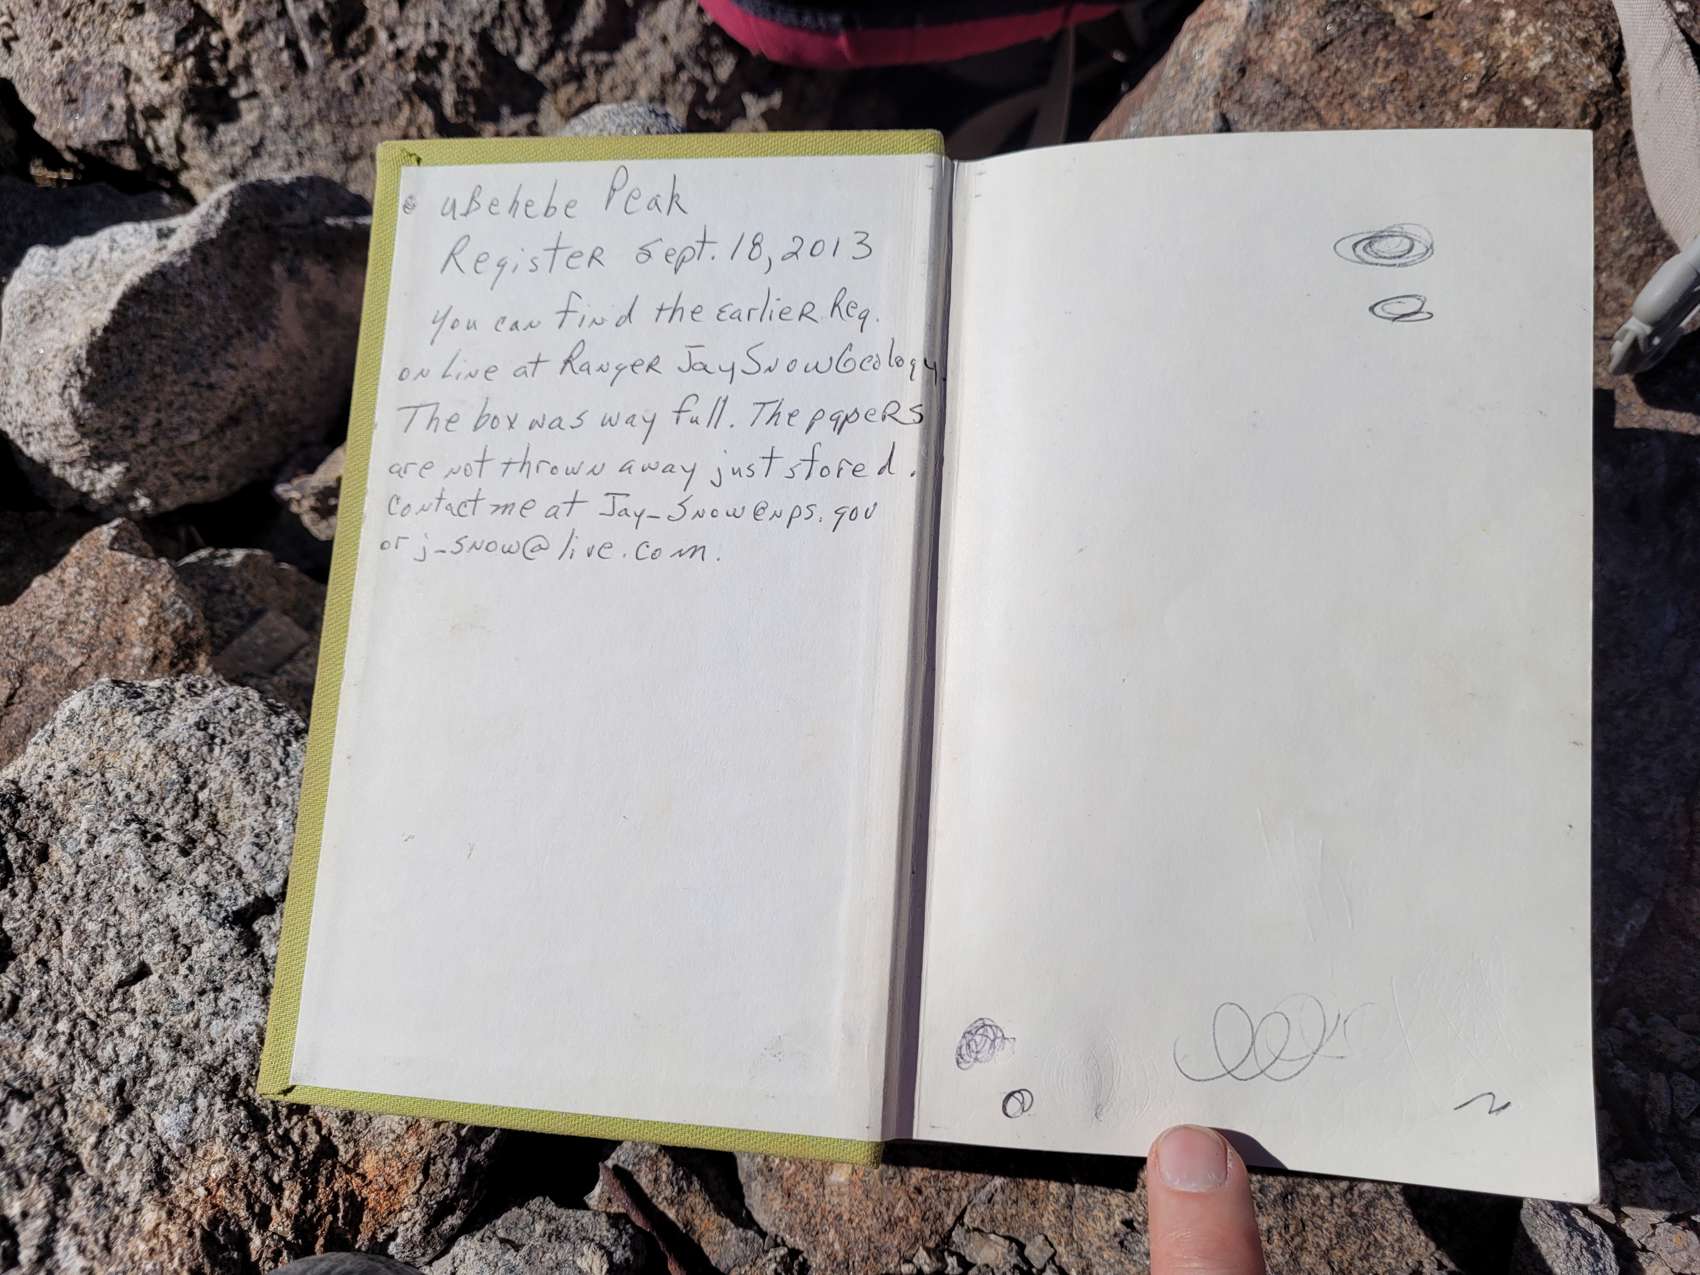 uBehebe Peak
Register Sept. 18, 2013
You can find the earlier Reg.
on line at Ranger JaySnowGeology.
The box was way full. The papers
are not thrown away just stored.
Contact me at Jay_Snow@nps.gov
or j_snow@live.com.